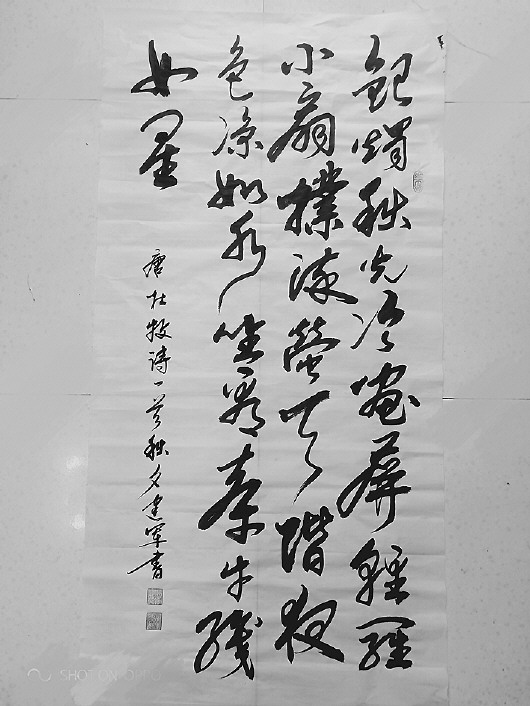 銀燭秋光冷畫屏輕羅
小扇撲流螢天階夜
色凉如水坐看牽牛織
女星
唐杜牧詩一首秋夕建軍書
SHOT ON